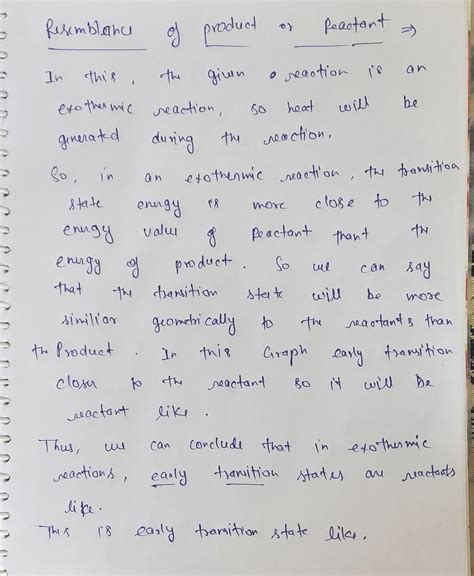 Resemblance of product or Reactant ⇒
In this, the given reaction is an
exothermic reaction, so heat will be
generated during the reaction.
So, in an exothermic reaction, the transition
state energy is more close to the
energy value of Reactant thant the
energy of product. So we can say
that the transition state will be more
similiar geometrically to the reactants than
the Product. In this Graph early transition
closer to the reactant so it will be
reactant like.
Thus, we can conclude that in exothermic
reactions, early transition states are reactants
like.
This is early transition state like.